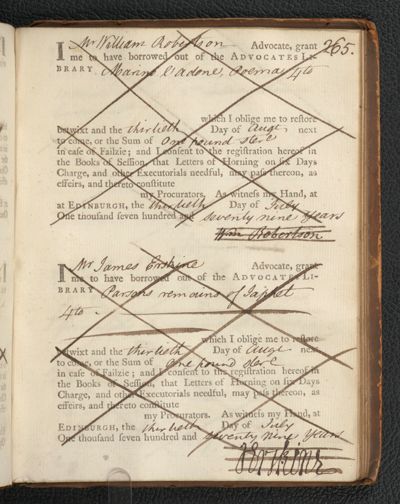 265.
I Mr William Robertson Advocate, grant
me to have borrowed out of the ADVOCATES LI-
BRARY Marino L'adone, Poema 4to
which I oblige me to reſtore
betwixt and the thirtieth Day of Augt next
to come, or the Sum of One pound ster.
in caſe of Failzie; and I conſent to the regiſtration hereof in
the Books of Seſſion, that Letters of Horning on ſix Days
Charge, and other Executorials needful, may paſs thereon, as
effeirs, and thereto conſtitute
my Procurators. As witneſs my Hand, at
at EDINBURGH, the thirtieth Day of July
One thouſand ſeven hundred and seventy nine Years
Wm Robertson
I Mr James Erskine Advocate, grant
me to have borrowed out of the ADVOCATES LI-
BRARY Parsons remains of Japhet
4to.
which I oblige me to reſtore
betwixt and the thirtieth Day of Augt next
to come, or the Sum of One pound ster.
in caſe of Failzie; and I conſent to the regiſtration hereof in
the Books of Seſſion, that Letters of Horning on ſix Days
Charge, and other Executorials needful, may paſs thereon, as
effeirs, and thereto conſtitute
my Procurators. As witneſs my Hand, at
EDINBURGH, the thirtieth Day of July
One thouſand ſeven hundred and seventy nine Years
Erskine